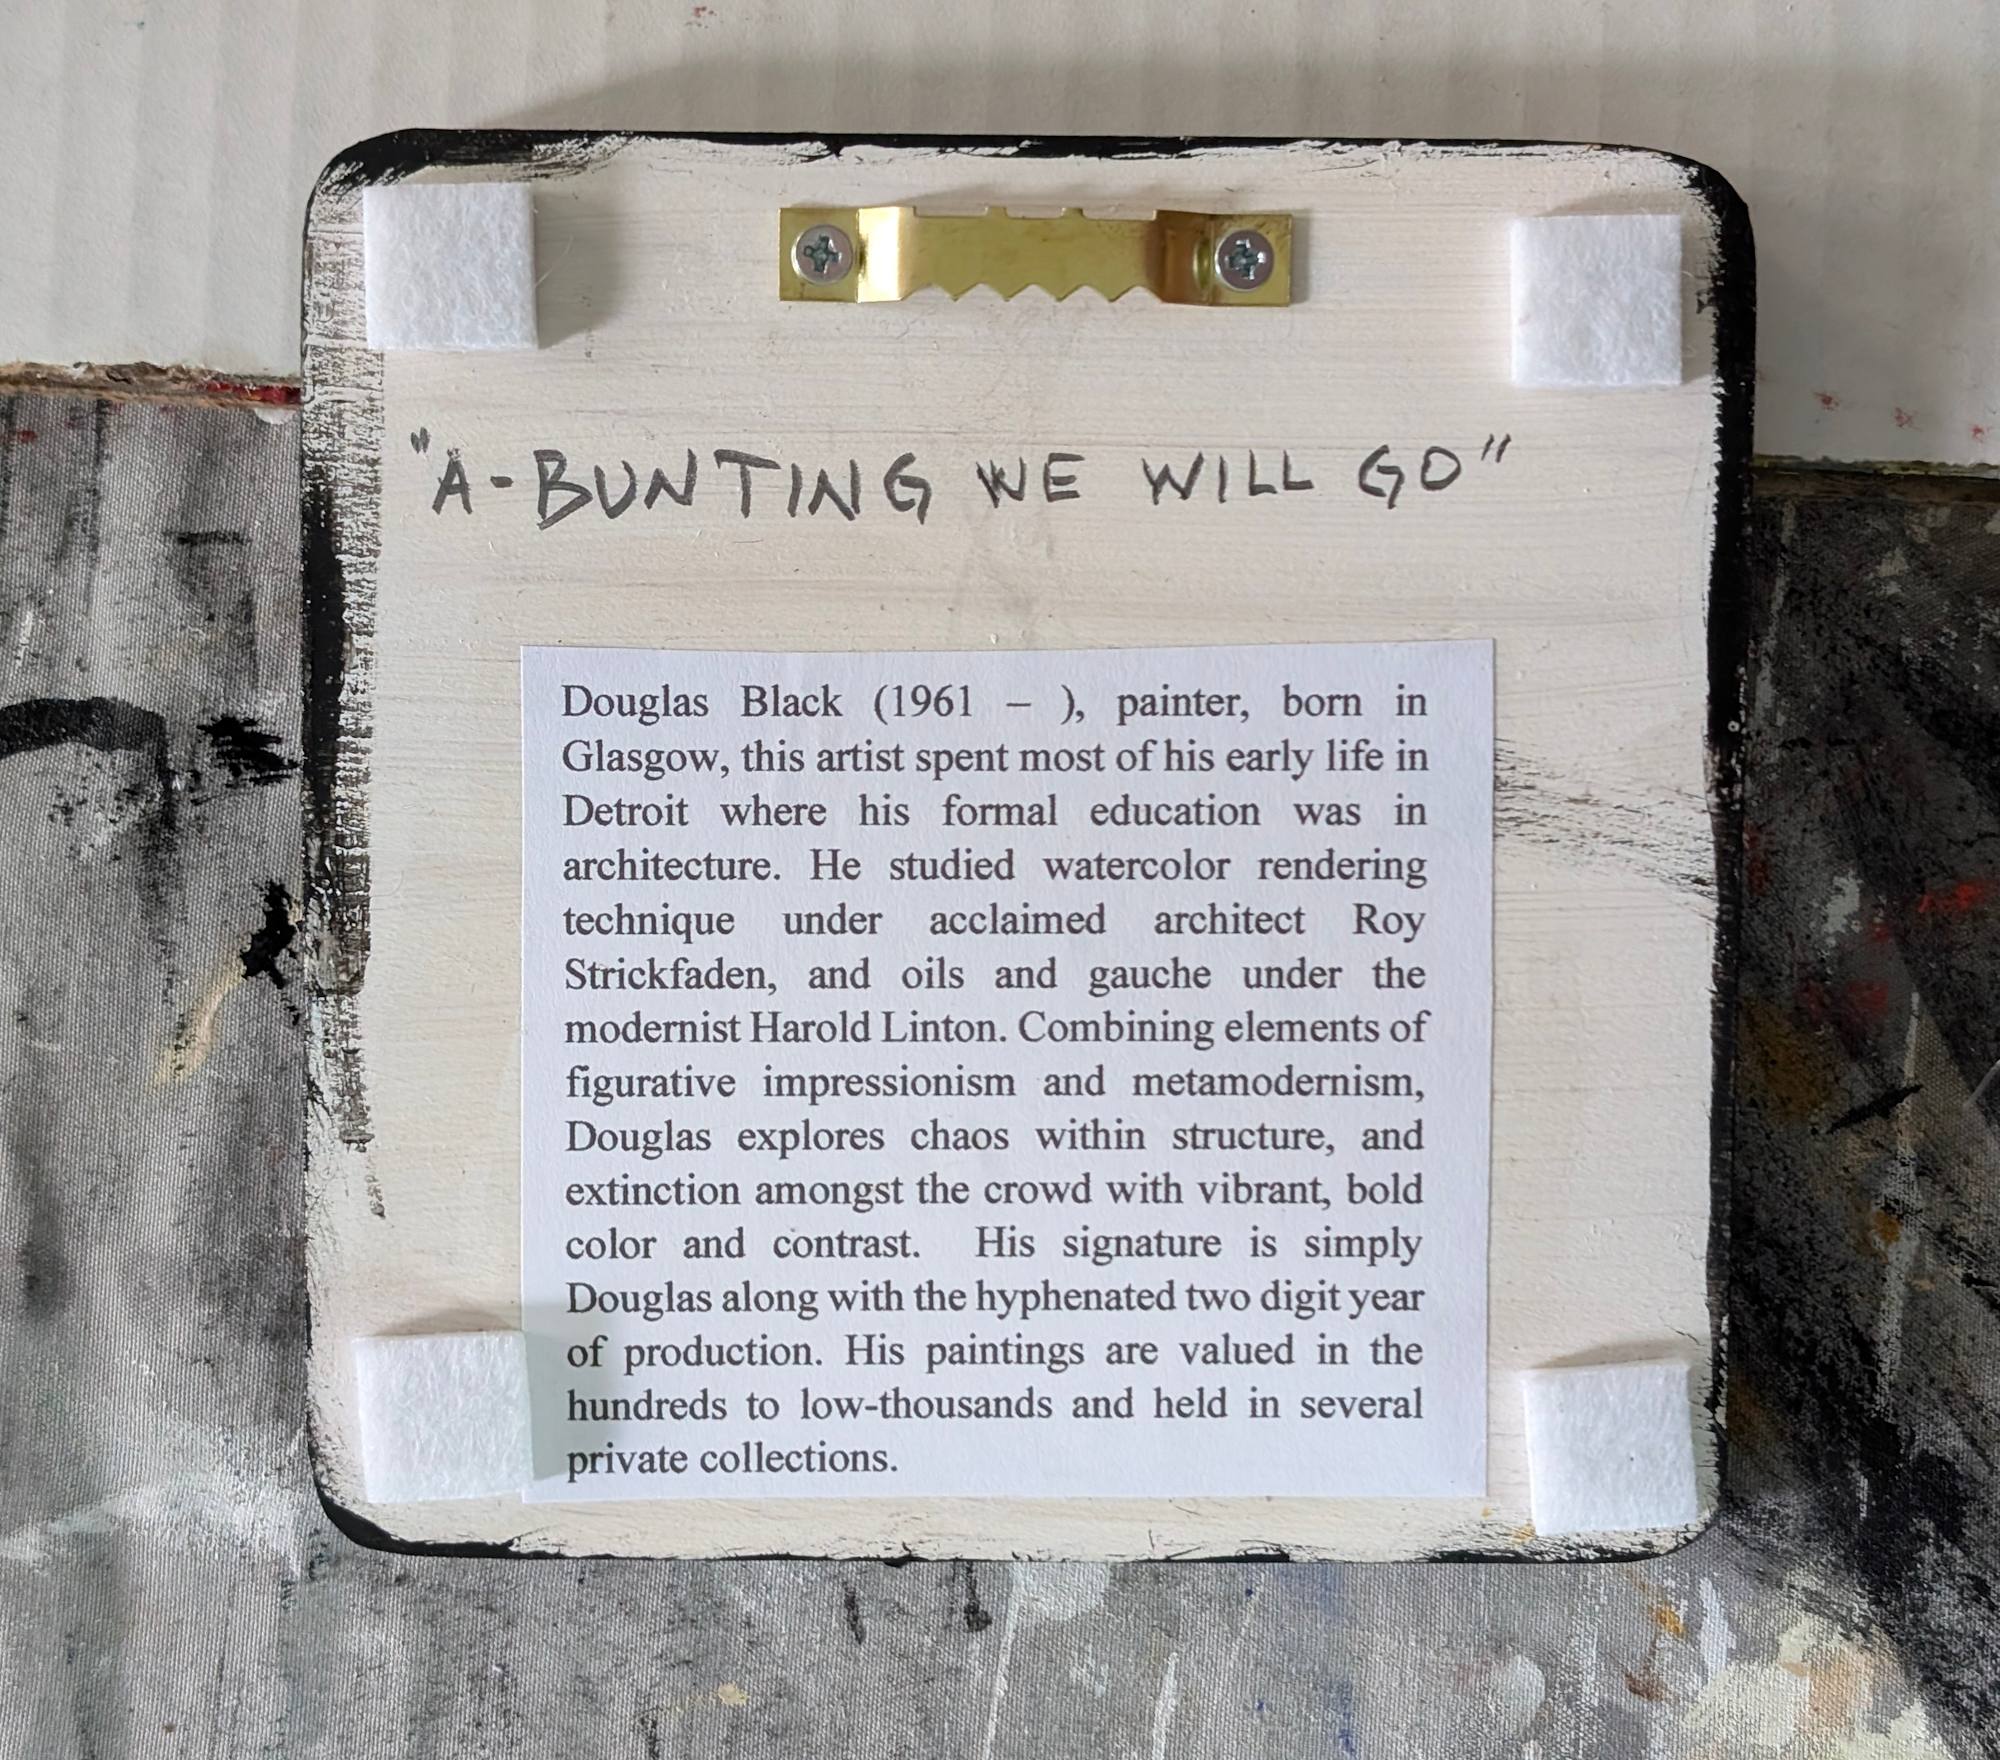 "A-BUNTING WE WILL GO"
Douglas Black (1961 – ), painter, born in
Glasgow, this artist spent most of his early life in
Detroit where his formal education was in
architecture. He studied watercolor rendering
technique under acclaimed architect Roy
Strickfaden, and oils and gauche under the
modernist Harold Linton. Combining elements of
figurative impressionism and metamodernism,
Douglas explores chaos within structure, and
extinction amongst the crowd with vibrant, bold
color and contrast. His signature is simply
Douglas along with the hyphenated two digit year
of production. His paintings are valued in the
hundreds to low-thousands and held in several
private collections.